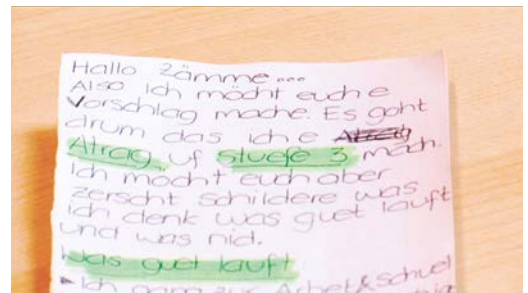 Hallo Zämme...
Also ich möcht euch e
Vorschlag mache. Es goht
drum das ich e
Atrag uf Stuefe 3 mach.
Ich möcht euch aber
zerscht schildere was
ich denk was guet lauft
und was nid.
Was guet lauft
Ich gang zur Arbet & Schuel